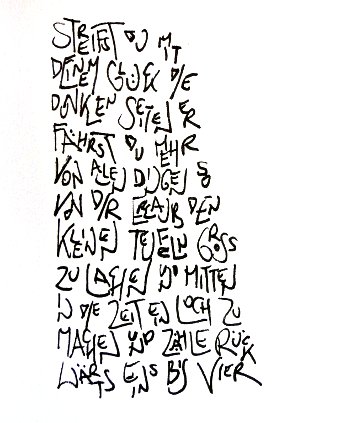 STREIFST DU MIT
DEINEM GLÜCK DIE
DUNKLEN SEITEN ER
FÄHRST DU MEHR
VON ALLEN DINGEN SO
VON DIR ERLAUB DEN
KLEINEN TEUFELN GROSS
ZU LACHEN UND MITTEN
IN DIE ZEIT EIN LOCH ZU
MACHEN UND ZÄHLE RÜCK
WÄRTS EINS BIS VIER